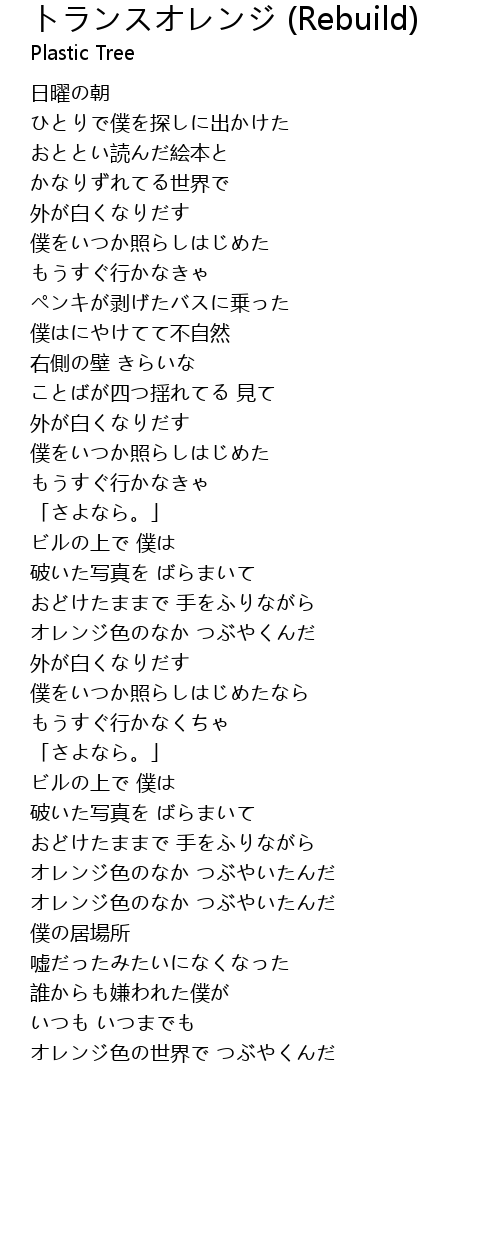 トランスオレンジ (Rebuild)
Plastic Tree
日曜の朝
ひとりで僕を探しに出かけた
おととい読んだ絵本と
かなりずれてる世界で
外が白くなりだす
僕をいつか照らしはじめた
もうすぐ行かなきゃ
ペンキが剥げたバスに乗った
僕はにやけてて不自然
右側の壁 きらいな
ことばが四つ揺れてる 見て
外が白くなりだす
僕をいつか照らしはじめた
もうすぐ行かなきゃ
「さよなら。」
ビルの上で 僕は
破いた写真を ばらまいて
おどけたままで 手をふりながら
オレンジ色のなか つぶやくんだ
外が白くなりだす
僕をいつか照らしはじめたなら
もうすぐ行かなくちゃ
「さよなら。」
ビルの上で 僕は
破いた写真を ばらまいて
おどけたままで 手をふりながら
オレンジ色のなか つぶやいたんだ
オレンジ色のなか つぶやいたんだ
僕の居場所
嘘だったみたいになくなった
誰からも嫌われた僕が
いつも いつまでも
オレンジ色の世界で つぶやくんだ